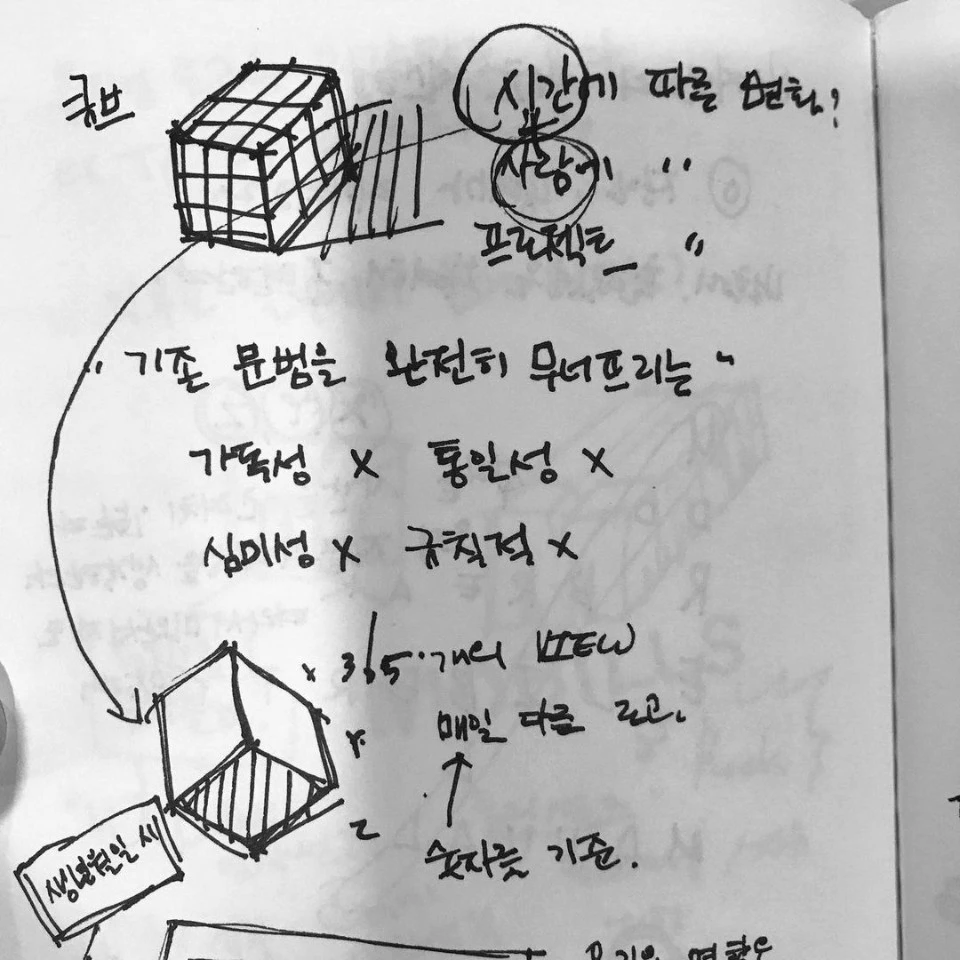 큐브
시간에 따른 변화?
사람에 "
프로젝트 "
" 기존 문법을 완전히 무너프리는 "
가독성 x 통일성 x
심미성 x 규칙적 x
x 365개의 VIEW
매일 다른 로고.
Y.
Z
숫자를 기준.
생년월일 시